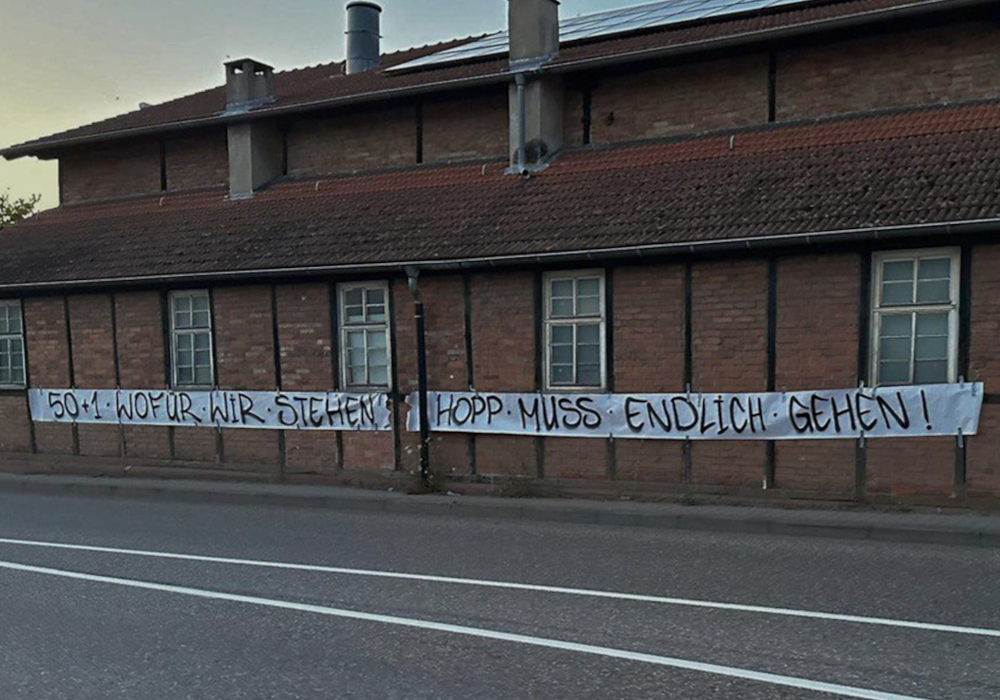 50+1·WOFÜR·WIR·STEHEN
HOPP·MUSS·ENDLICH·GEHEN!